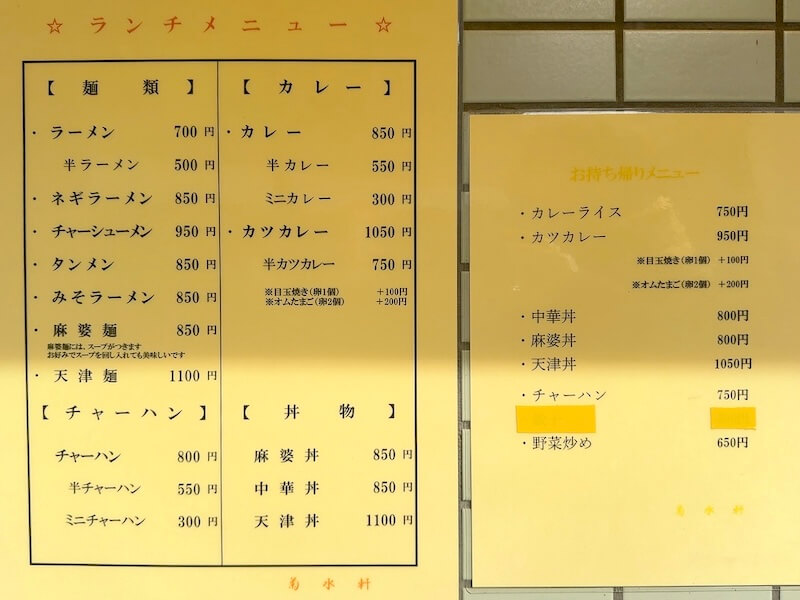 ☆ ランチメニュー ☆
【 麺 類 】
・ラーメン 700 円
半ラーメン 500 円
・ネギラーメン 850 円
・チャーシューメン 950 円
・タンメン 850 円
・みそラーメン 850 円
・麻婆麺 850 円
麻婆麺には、スープがつきます
お好みでスープを回し入れても美味しいです
・天津麺 1100 円
【 チャーハン 】
チャーハン 800 円
半チャーハン 550 円
ミニチャーハン 300 円
【 カ レ ー 】
・カレー 850 円
半カレー 550 円
ミニカレー 300 円
・カツカレー 1050 円
半カツカレー 750 円
※目玉焼き(卵1個) +100円
※オムたまご(卵2個) +200円
【 丼 物 】
麻婆丼 850 円
中華丼 850 円
天津丼 1100 円
菊水軒
お持ち帰りメニュー
・カレーライス 750円
・カツカレー 950円
※目玉焼き(卵1個) +100円
※オムたまご(卵2個) +200円
・中華丼 800円
・麻婆丼 800円
・天津丼 1050円
・チャーハン 750円
・野菜炒め 650円
菊水軒